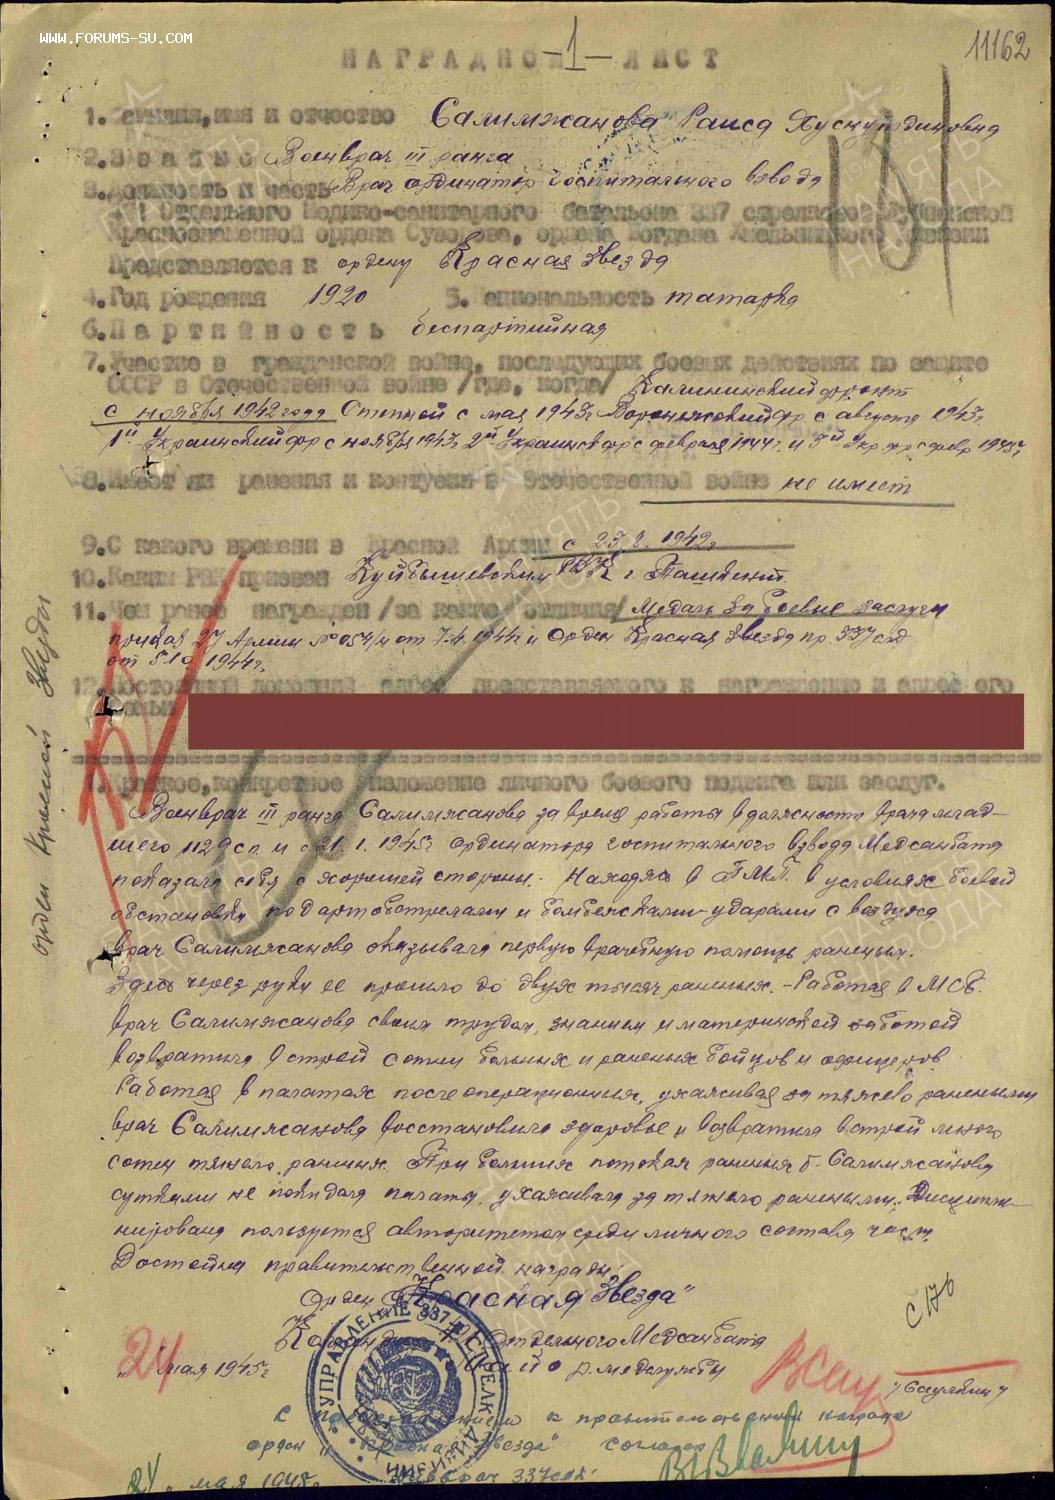 WWW.FORUMS-SU.COM
11162
НАГРАДНОЙ -1- ЛИСТ
1. Фамилия, имя и отчество Салимжанова Раиса Хуснутдиновна
2. Звание Военврач III ранга
3. Должность и часть Врач ординатор госпитального взвода
Отдельного Медико-санитарного батальона 337 стрелковой Лубненской
Краснознаменной ордена Суворова, ордена Богдана Хмельницкого дивизии
Представляется к ордену Красная Звезда
4. Год рождения 1920 5. Национальность татарка
6. Партийность беспартийная
7. Участие в гражданской войне, последующих боевых действиях по защите
СССР и Отечественной войне /где, когда/ Калининский фронт
с ноября 1942 года Степной с мая 1943г Воронежский фр с августа 1943г
1й Украинский фр с ноября 1943г. 2й Украинск фр с февраля 1944г. и 3й Укр. фр с февр 1945г.
8. Имеет ли ранения и контузии в Отечественной войне не имеет
9. С какого времени в Красной Армии с 1942г
10. Каким РВК призван Куйбышевским РВК г. Ташкент
11. Чем ранее награжден /за какие отличия/ Медаль За боевые заслуги
приказ 27 Армии № 054/н от 7.4.1944г и Орден Красная Звезда пр. 337 сд
от 1944г.
12. Постоянный домашний адрес представляемого к награждению и адрес его
семьи
орден Красной Звезды
1. Краткое, конкретное изложение личного боевого подвига или заслуг.
Военврач III ранга Салимжанова за время работы в должности врача млад-
шего 1129 сп и с 21.1.1945г ординатора госпитального взвода Медсанбата
показала себя с хорошей стороны. Находясь в ПМП в условиях боевой
обстановки под артобстрелами и бомбежками-ударами с воздуха
врач Салимжанова оказывала первую врачебную помощь раненым.
Здесь через руки ее прошло до двух тысяч раненых. - Работая в МСБ.
врач Салимжанова своим трудом, знанием и материнской заботой
возвратила в строй сотни больных и раненых бойцов и офицеров
Работая в палатах послеоперационных, ухаживая за тяжело ранеными
врач Салимжанова восстановила здоровье и возвратила в строй много
сотен тяжело раненых. При больших потоках раненых т. Салимжанова
сутками не покидала палаты, ухаживала за тяжело ранеными. Дисципли-
нирована пользуется авторитетом среди личного состава части
Достойна правительственной награды:
Орден "Красная Звезда"
Командир Отдельного Медсанбата
майор медслужбы
24 мая 1945г
УПРАВЛЕНИЕ 337 СТРЕЛК. ДИВИЗИИ
С представлением к правительственной награде
орден "Красная Звезда" согласен
Дивврач 337 сд
24 мая 1945г.